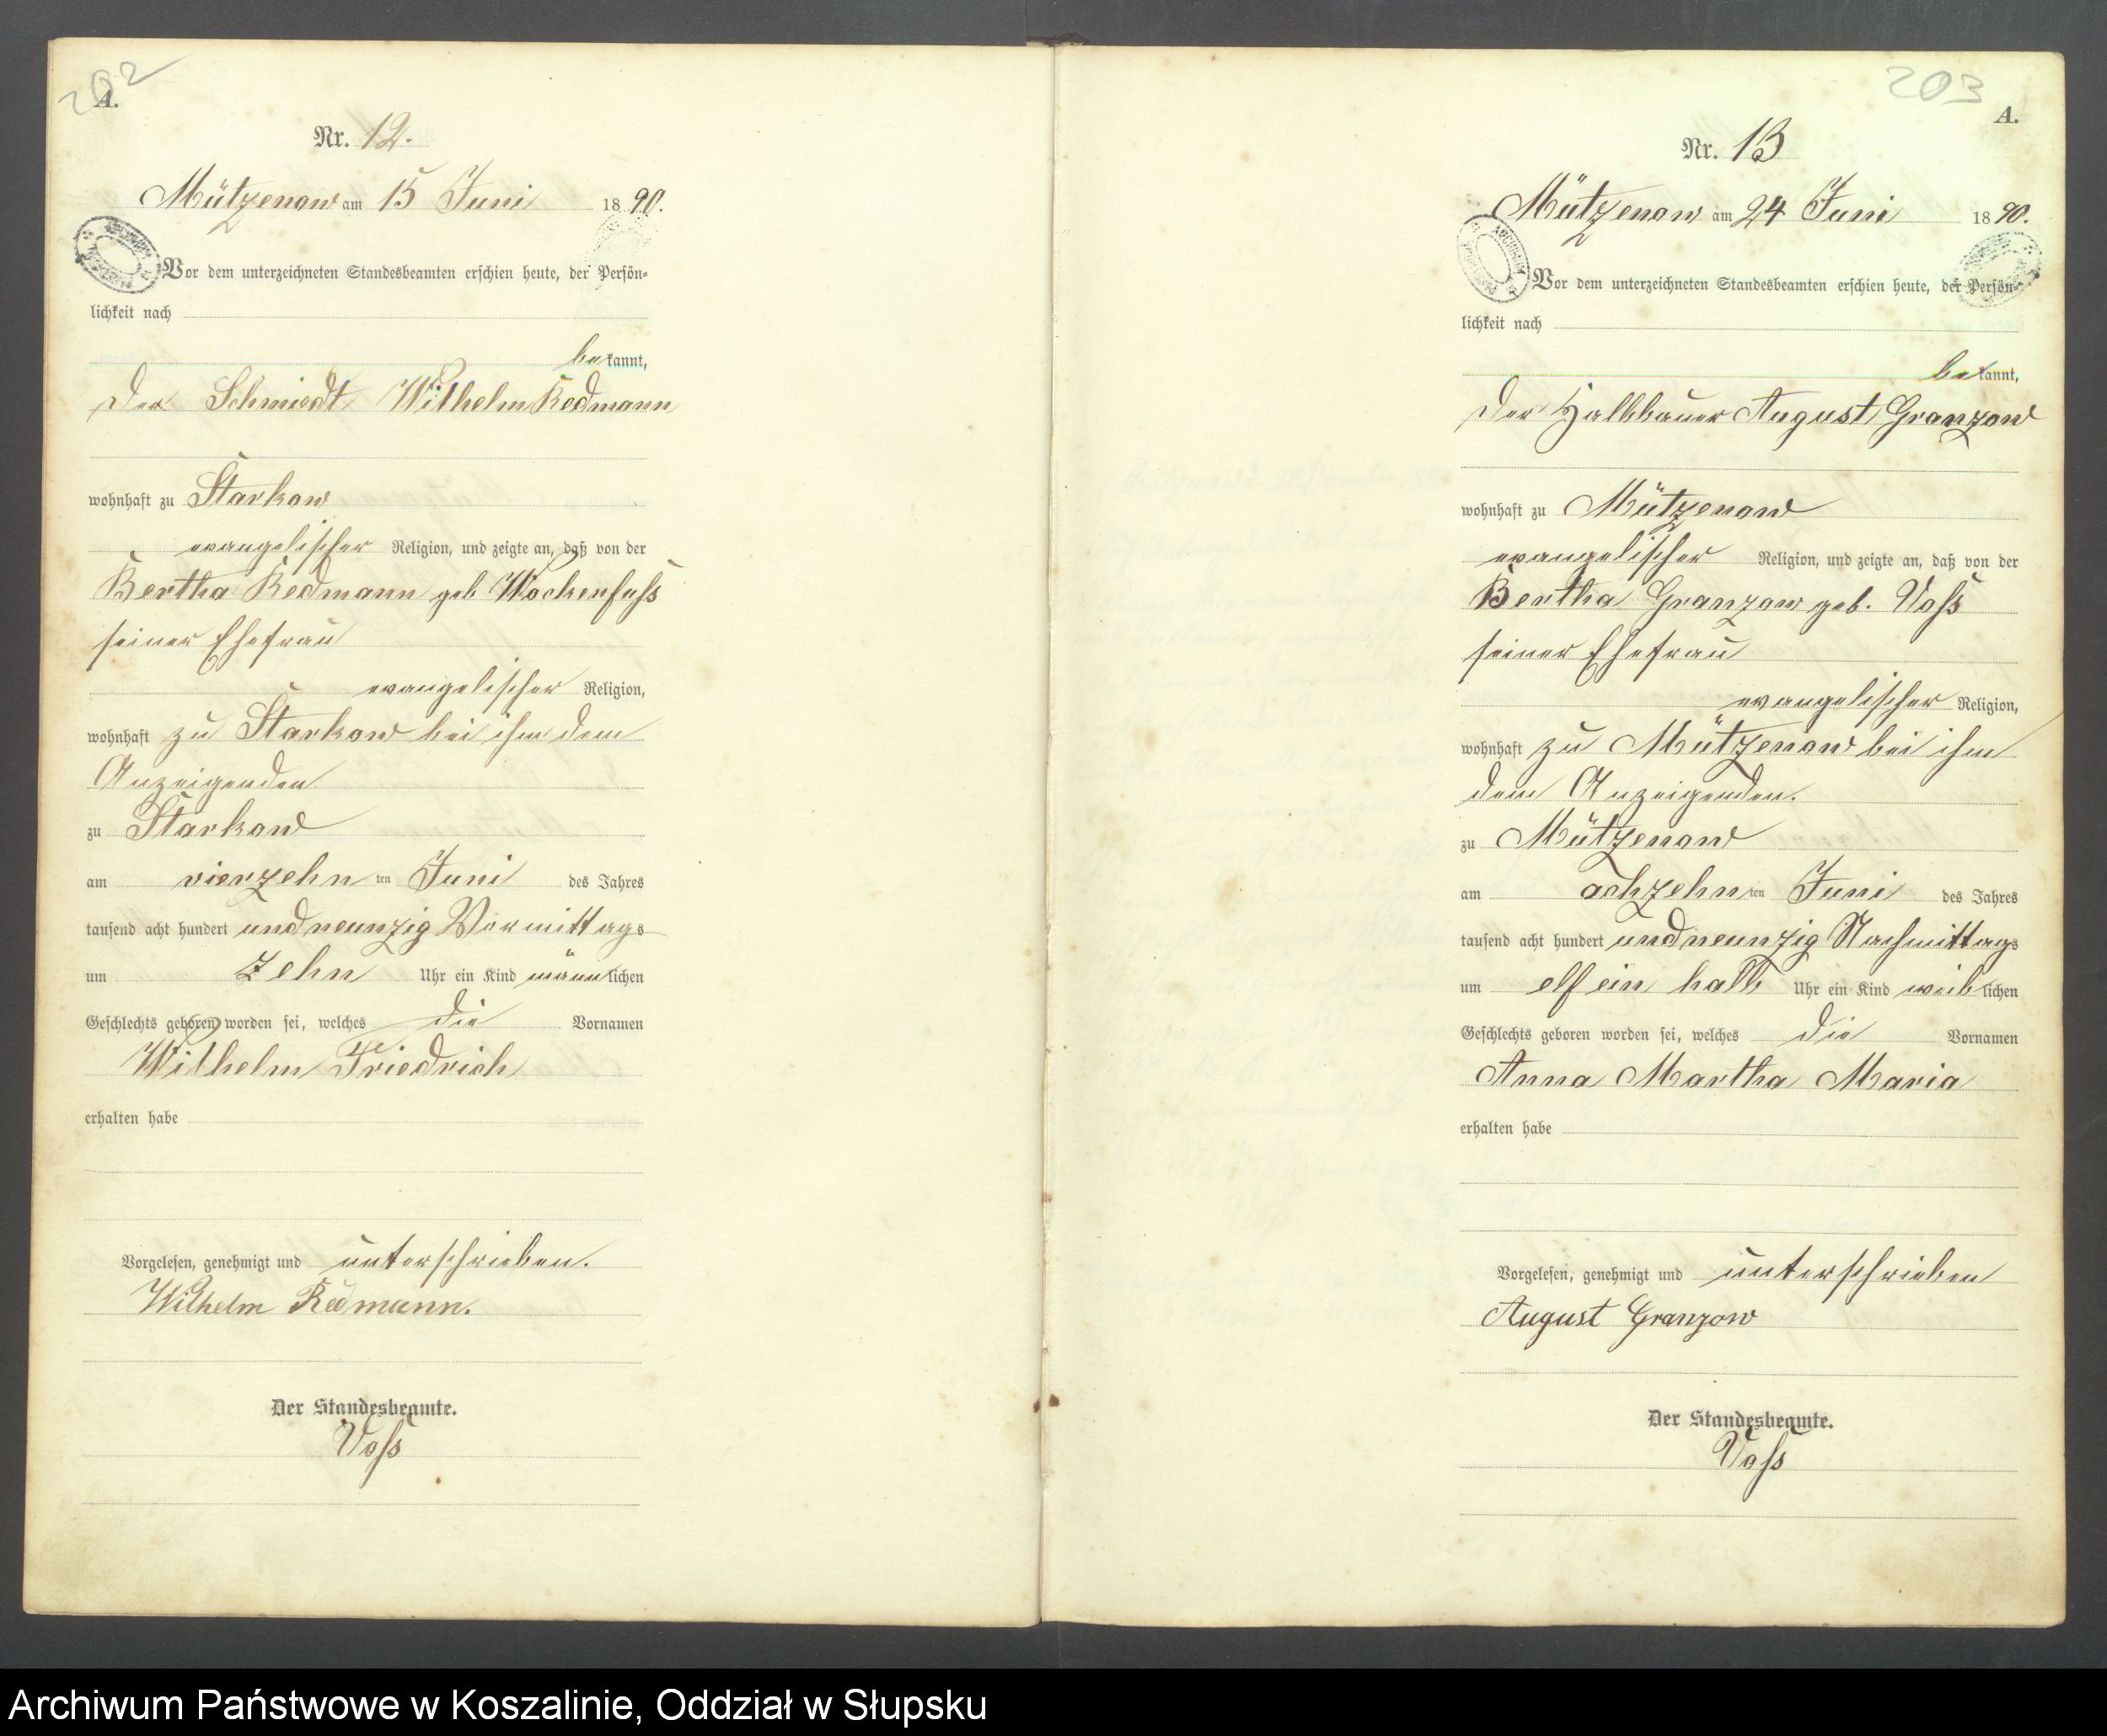 202
A.
Nr. 12.
Mützenow am 15 Juni 1890.
Vor dem unterzeichneten Standesbeamten erschien heute, der Persön-
lichkeit nach
bekannt,
der Schmiedt Wilhelm Redmann
wohnhaft zu Starkow
evangelischer Religion, und zeigte an, daß von der
Bertha Redmann geb Wockenfuss
seiner Ehefrau
evangelischer Religion,
wohnhaft zu Starkow bei ihm dem
Anzeigenden
zu Starkow
am vierzehn ten Juni des Jahres
tausend acht hundert und neunzig Vormittags
um zehn Uhr ein Kind männlichen
Geschlechts geboren worden sei, welches die Vornamen
Wilhelm Friedrich
erhalten habe
Vorgelesen, genehmigt und unterschrieben.
Wilhelm Redmann.
Der Standesbeamte.
Voss
203
A.
Nr. 13
Mützenow am 24 Juni 1890.
Vor dem unterzeichneten Standesbeamten erschien heute, der Persön-
lichkeit nach
bekannt,
der Halbbauer August Granzow
wohnhaft zu Mützenow
evangelischer Religion, und zeigte an, daß von der
Bertha Granzow geb. Voss
seiner Ehefrau
evangelischer Religion,
wohnhaft zu Mützenow bei ihm
dem Anzeigenden.
zu Mützenow
am achzehn ten Juni des Jahres
tausend acht hundert und neunzig Nachmittags
um elf ein halb Uhr ein Kind weiblichen
Geschlechts geboren worden sei, welches die Vornamen
Anna Martha Maria
erhalten habe
Vorgelesen, genehmigt und unterschrieben
August Granzow
Der Standesbeamte.
Voss
Archiwum Państwowe w Koszalinie, Oddział w Słupsku